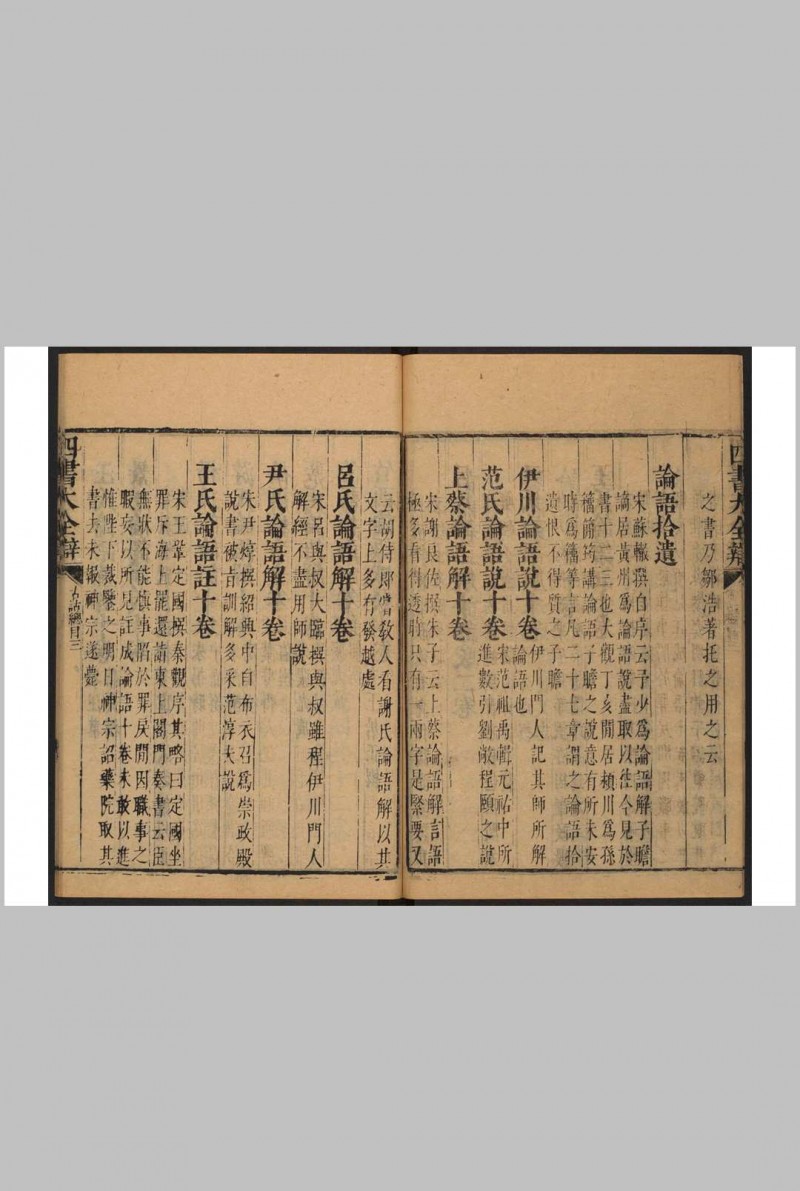 四書大全辯
之書乃鄒浩著托之用之云
論語拾遺
宋蘇轍撰自序云予少爲論語解子瞻
謫居黃州爲論語說盡取以往今見於
書十二三也大觀丁亥閒居潁川爲孫
籀簡筠講論語子瞻之說意有所未安
時爲籀等言凡二十七章謂之論語拾
遺恨不得質之子瞻
伊川論語說十卷
伊川門人記其師所解
論語也
范氏論語說十卷
宋范祖禹輯元祐中所
進數引劉敞程頤之說
上蔡論語解十卷
宋謝良佐撰朱子云上蔡論語解言語
極多看得透時只有一兩字是緊要又
云胡侍郎嘗敎人看謝氏論語解以其
文字上多有發越處
呂氏論語解十卷
宋呂與叔大臨撰與叔雖程伊川門人
解經不盡用師說
尹氏論語解十卷
宋尹焞撰紹興中自布衣召爲崇政殿
說書被旨訓解多采范淳夫說
王氏論語註十卷
宋王鞏定國撰秦觀序其略曰定國坐
罪斥海上罷還請東上閤門奏書云臣
無狀不能愼事陷於罪戾閒因職事之
暇妄以所見註成論語十卷未敢以進
惟陛下裁鑒之明日神宗詔藥院取其
書去未報神宗遂薨
四書大全辯
總目三